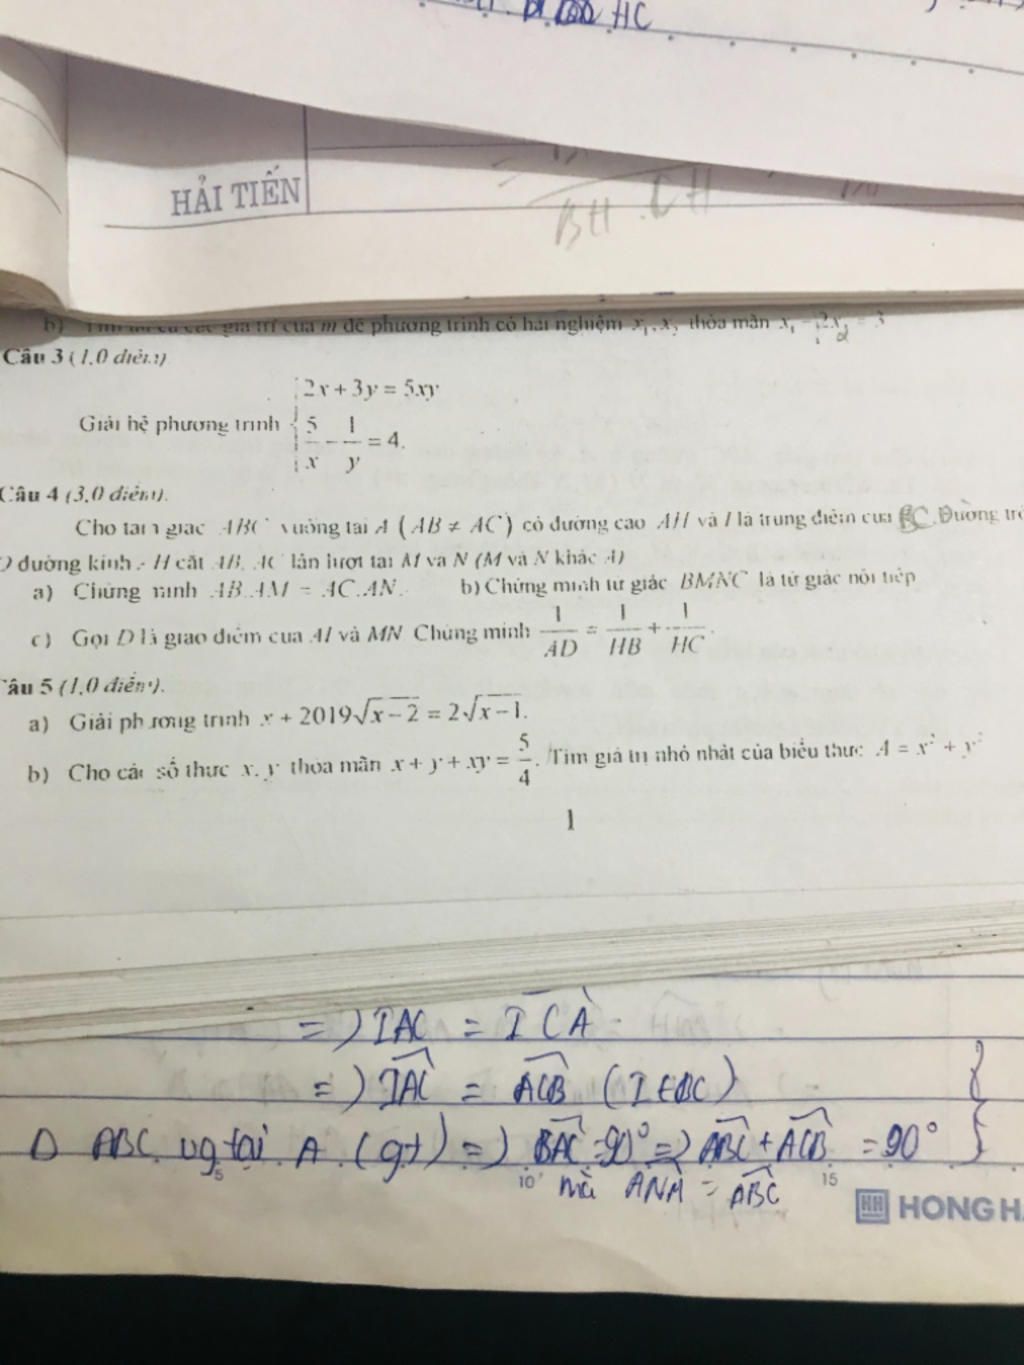 HC
HẢI TIẾN
BH . CH
b) Tìm tất cả các giá trị của m để phương trình có hai nghiệm x₁, x₂ thỏa mãn x₁ - 2x₂ = 3
Câu 3 (1,0 điểm)
Giải hệ phương trình { 2x + 3y = 5xy
5/x - 1/y = 4.
Câu 4 (3,0 điểm).
Cho tam giác ABC vuông tại A (AB ≠ AC) có đường cao AH và I là trung điểm của BC. Đường
O đường kính AH cắt AB, AC lần lượt tại M và N (M và N khác A)
a) Chứng minh AB.AM = AC.AN. b) Chứng minh tứ giác BMNC là tứ giác nội tiếp
c) Gọi D là giao điểm của AI và MN. Chứng minh 1/AD = 1/HB + 1/HC.
Câu 5 (1,0 điểm).
a) Giải phương trình x + 2019√(x-2) = 2√(x-1).
b) Cho các số thực x, y thỏa mãn x + y + xy = 5/4. Tìm giá trị nhỏ nhất của biểu thức A = x² + y²
1
=) IAC = ICA
=) IAC = ACB (I ∈ BC)
Δ ABC vg tại A (gt) =) BAC = 90° =) ABC + ACB = 90° }
mà ANM = ABC
5 10 15
HH HONG H